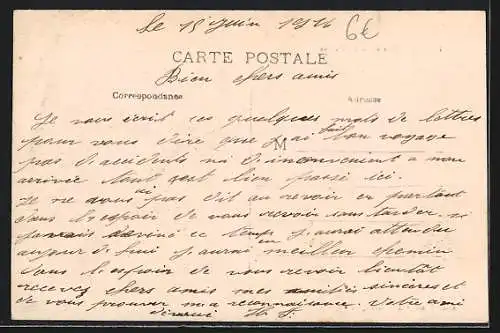 le 15 Juin 1924
6€
CARTE POSTALE
Bien chers amis
Correspondance
Adresse
M
Je vous écrit ces quelques mots de lettres
pour vous dire que j'ai fait bon voyage
pas d'accidents ni d'inconvenient a mon
arrivée tout sest bien passé ici.
Je ne vous ai pas dit au revoir en partant
dans l'espoir de vous revoir sans tarder. si
javais deviné ce temps j'aurai attendu
aujour d'hui j'aurai eu meilleur chemin
dans l'espoir de vous revoir bientôt
recevez chers amis mes amitiés sincères et
de vous prouver ma reconnaissance. Votre ami